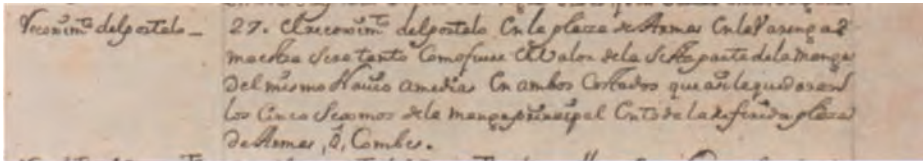 Reconim.to del postelo_
27. El reconim.to del postelo En la plaza de Armas En la Varenga
maestra sera tanto Como fuere El Valor de la Sesta parte de la manga
del mismo Navio a medias En ambos Costados que asi le quedaran
los Cinco Sesmos de la manga prinsipal Ento de la referida plaza
de Armas, ô, Combes.